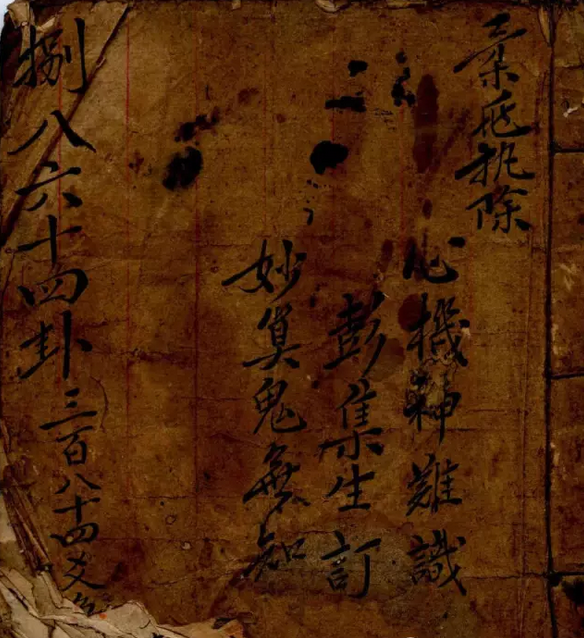 执除
心機神難識
彭集生訂
妙算鬼無知
捌八六十四卦三百八十四爻